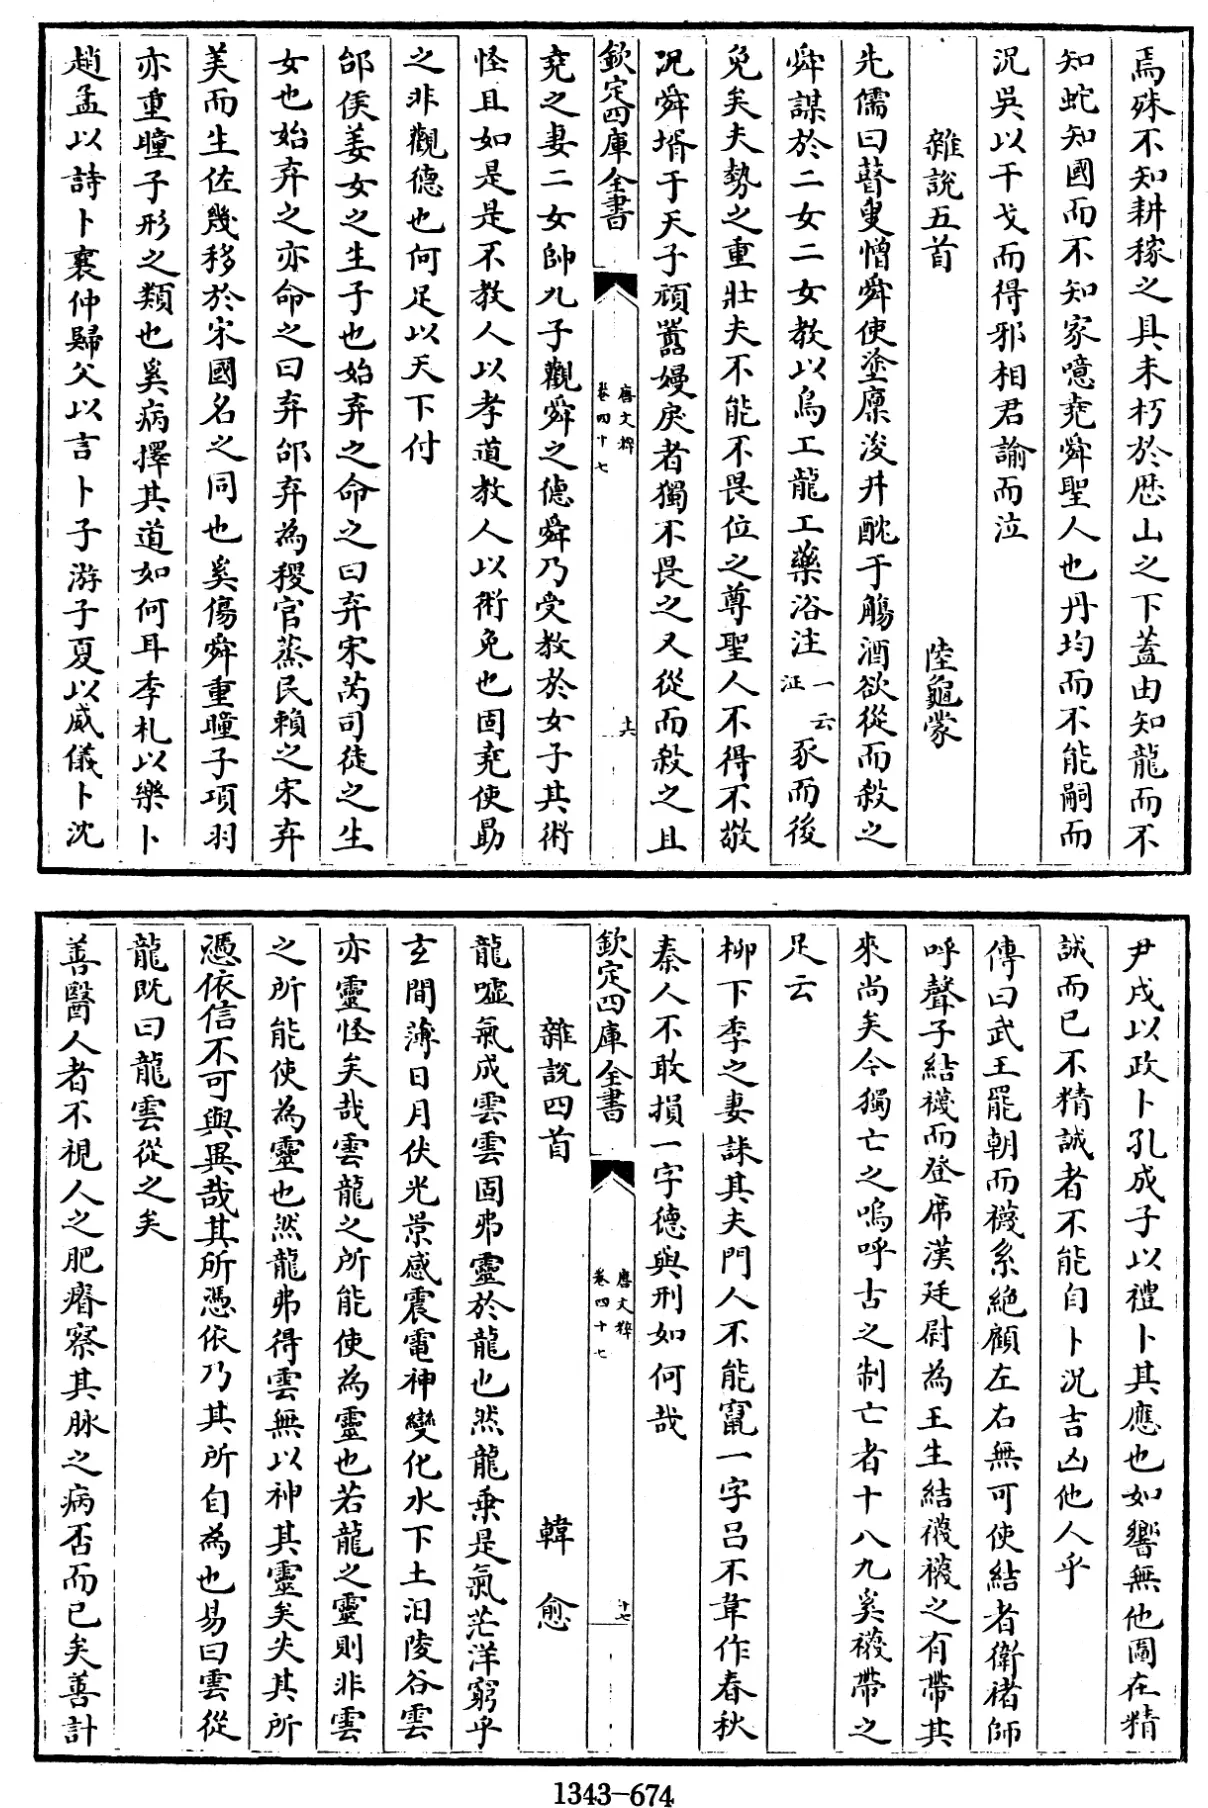 焉殊不知耕稼之具未朽於歴山之下蓋由知龍而不
知蛇知國而不知家噫堯舜聖人也丹均而不能嗣而
況吳以干戈而得邪相君諭而泣
雜說五首 陸龜蒙
先儒曰瞽叟憎舜使塗廩浚井酖于觴酒欲從而殺之
舜謀於二女二女教以鳥工龍工藥浴注一云泟豕而後
免矣夫勢之重壯夫不能不畏位之尊聖人不得不敬
況舜壻于天子頑嚚嫚戾者獨不畏之又從而殺之且
欽定四庫全書 唐文粹 卷四十七 十六
堯之妻二女帥九子觀舜之德舜乃受教於女子其術
怪且如是是不教人以孝道教人以術免也固堯使勗
之非觀德也何足以天下付
邰侯姜女之生子也始弃之命之曰弃宋芮司徒之生
女也始弃之亦命之曰弃邰弃為稷官蒸民賴之宋弃
美而生佐幾移於宋國名之同也奚傷舜重瞳子項羽
亦重瞳子形之類也奚病擇其道如何耳季札以樂卜
趙孟以詩卜襄仲歸父以言卜子游子夏以威儀卜沈
尹戌以政卜孔成子以禮卜其應也如響無他圖在精
誠而已不精誠者不能自卜況吉凶他人乎
傳曰武王罷朝而襪系絶顧左右無可使結者衛褚師
呼聲子結襪而登席漢廷尉為王生結襪襪之有帶其
來尚矣今獨亡之嗚呼古之制亡者十八九奚襪帶之
足云
柳下季之妻誄其夫門人不能竄一字呂不韋作春秋
秦人不敢損一字德與刑如何哉
欽定四庫全書 唐文粹 卷四十七 十七
雜說四首 韓愈
龍噓氣成雲雲固弗靈於龍也然龍乗是氣茫洋窮乎
玄間薄日月伏光景感震電神變化水下土汩陵谷雲
亦靈怪矣哉雲龍之所能使為靈也若龍之靈則非雲
之所能使為靈也然龍弗得雲無以神其靈矣失其所
憑依信不可與異哉其所憑依乃其所自為也易曰雲從
龍既曰龍雲從之矣
善醫人者不視人之肥瘠察其脉之病否而已矣善計
1343-674